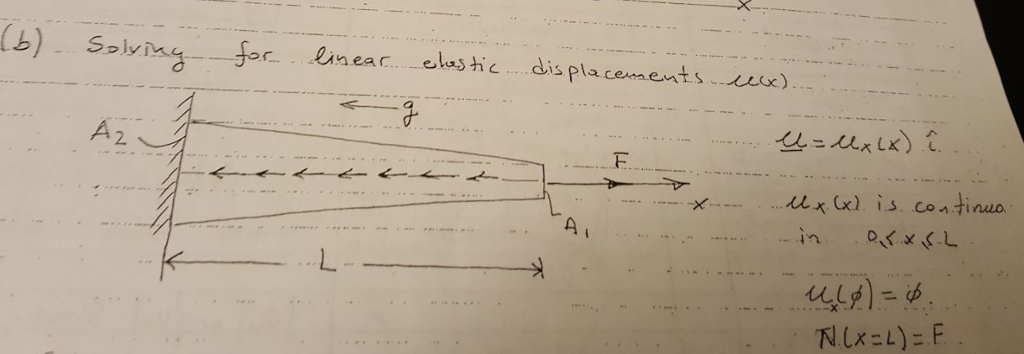 (b) Solving for linear elastic displacements u(x)
g
A2
F
x
A1
L
u = ux(x) î
ux(x) is continuo
in 0 ≤ x ≤ L
ux(ϕ) = ϕ.
N(x=L) = F